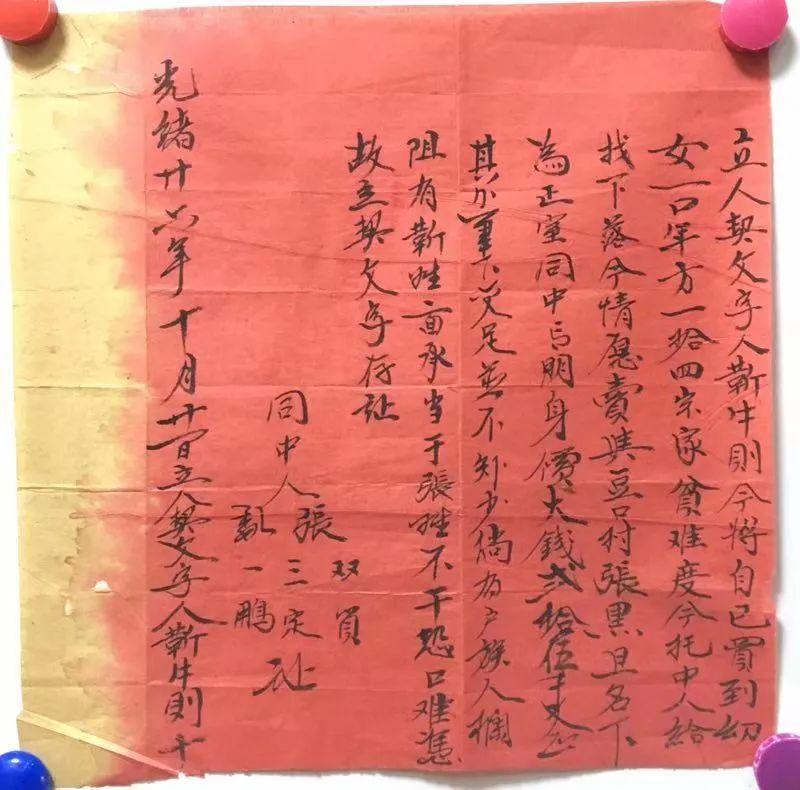 立人契文字人靳牛則今將自己買到幼
女一口年方一拾四宗家貧难度今托中人給
找下落今情愿賣與豆口村張黑旦名下
為正室同中言明身價大錢弍拾伍千文正
其錢筆下交足並不欠少倘有户族人攔
阻有靳姓一面承当于張姓不干恐口难憑
故立契文字存証
同中人 張 双貟
三定
一鵬
証
光緒廿六年十月廿一日立人契文字人靳牛則十